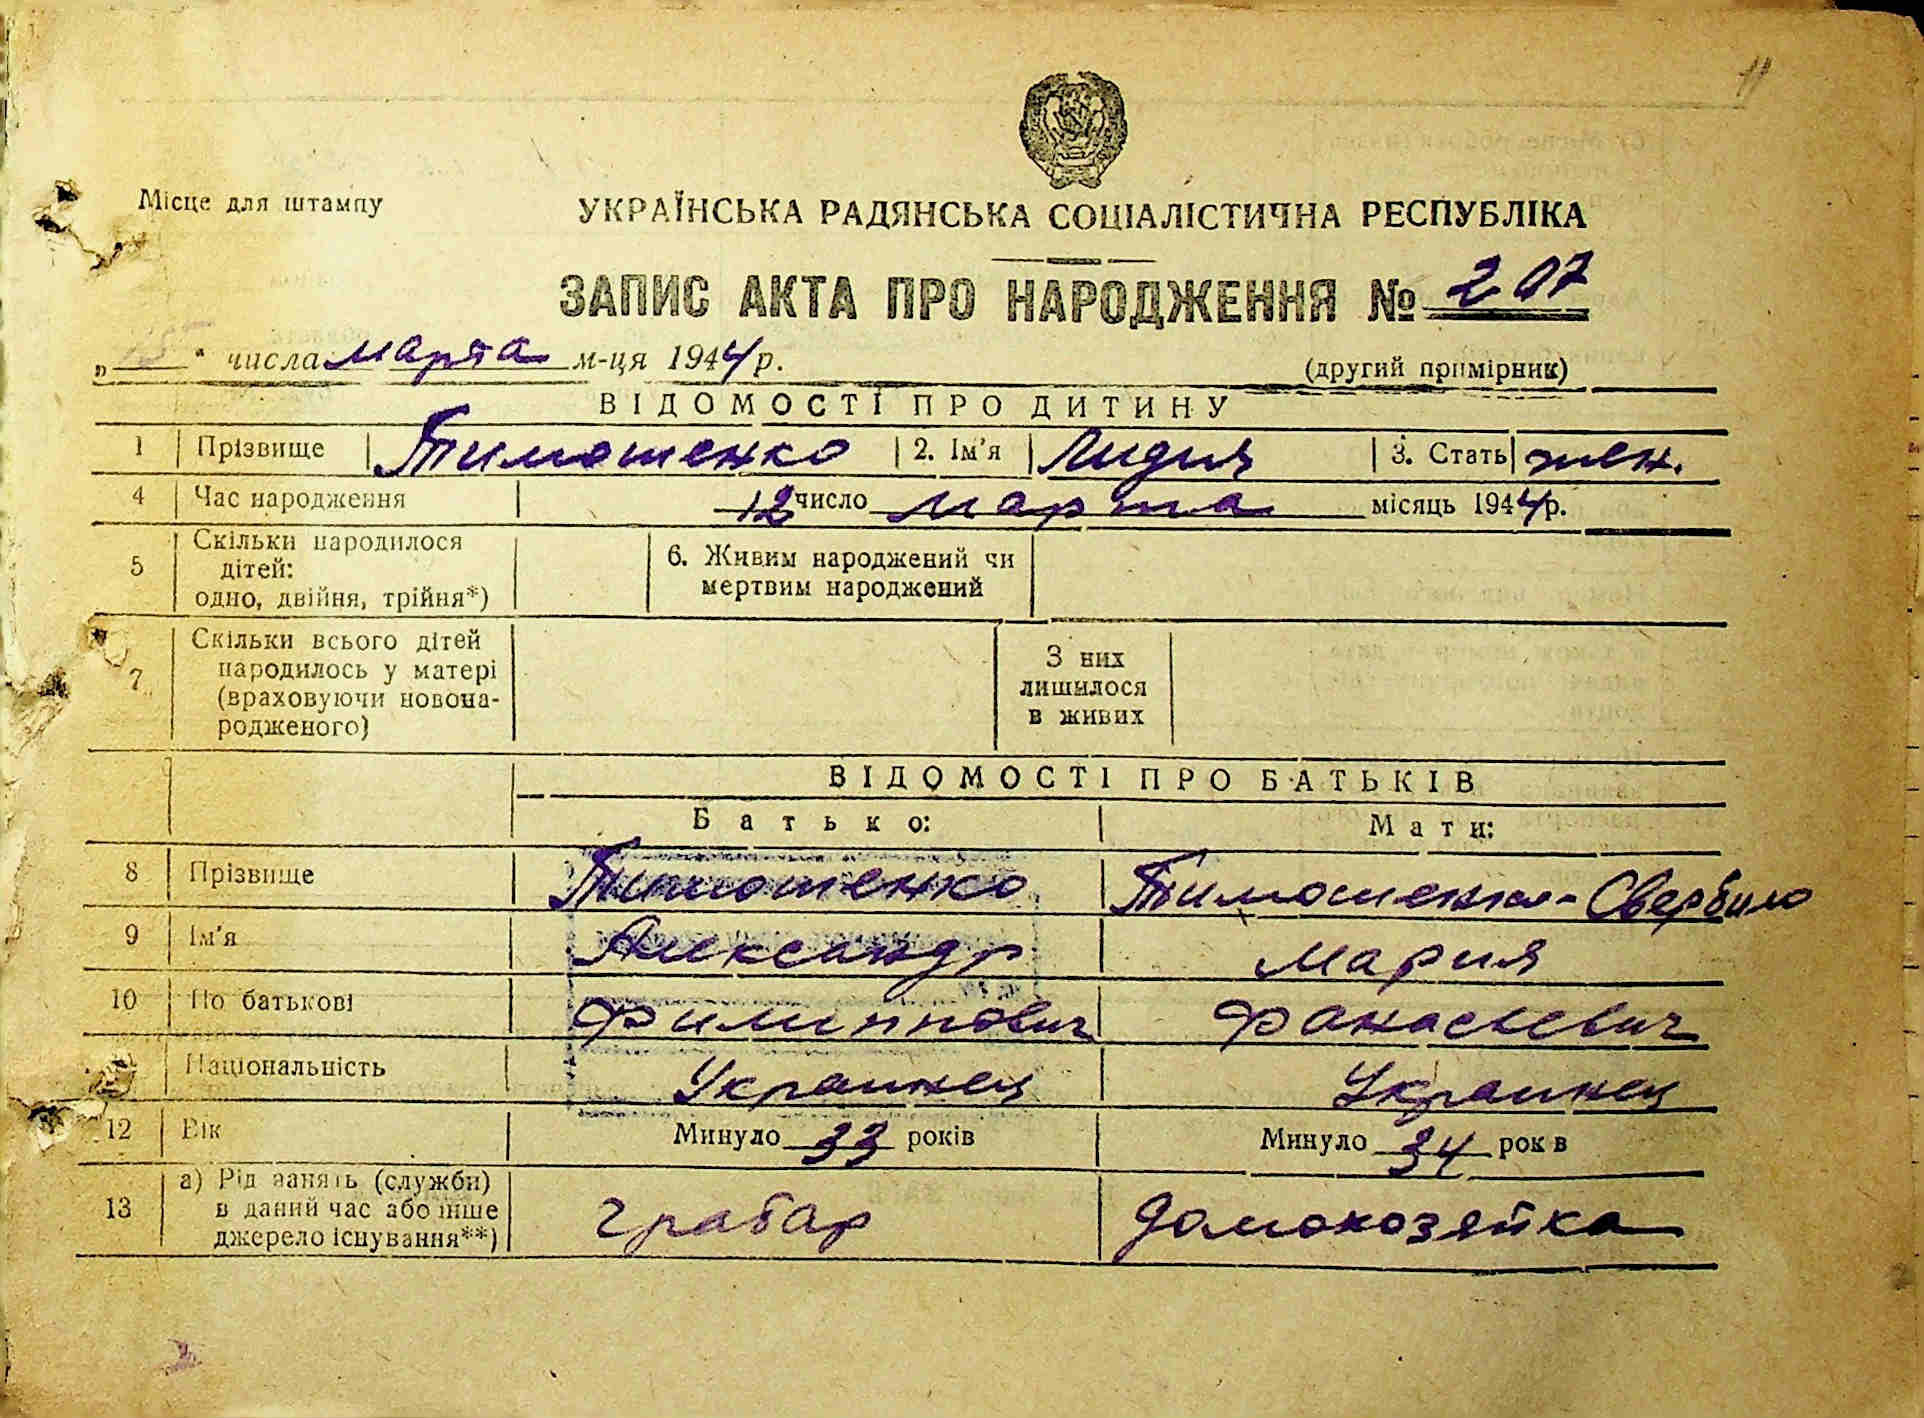 11
Місце для штампу
УКРАЇНСЬКА РАДЯНСЬКА СОЦІАЛІСТИЧНА РЕСПУБЛІКА
ЗАПИС АКТА ПРО НАРОДЖЕННЯ № 207
„15" числа марта м-ця 1944 р.
(другий примірник)
ВІДОМОСТІ ПРО ДИТИНУ
1 Прізвище Тимошенко 2. Ім'я Лидия 3. Стать жен.
4 Час народження 12 число марта місяць 1944 р.
5 Скільки народилося
дітей:
одно, двійня, трійня*)
6. Живим народжений чи
мертвим народжений
7 Скільки всього дітей
народилось у матері
(враховуючи новона-
родженого)
З них
лишилося
в живих
ВІДОМОСТІ ПРО БАТЬКІВ
Батько: Мати:
8 Прізвище Тимошенко Тимошенко-Свербило
9 Ім'я Александр Мария
10 По батькові Филиппович Фанасьевич
Національність Украинец Украинец
12 Вік Минуло 33 років Минуло 34 рок в
13 а) Рід занять (служби)
в даний час або інше
джерело існування**)
грабар домохозяйка